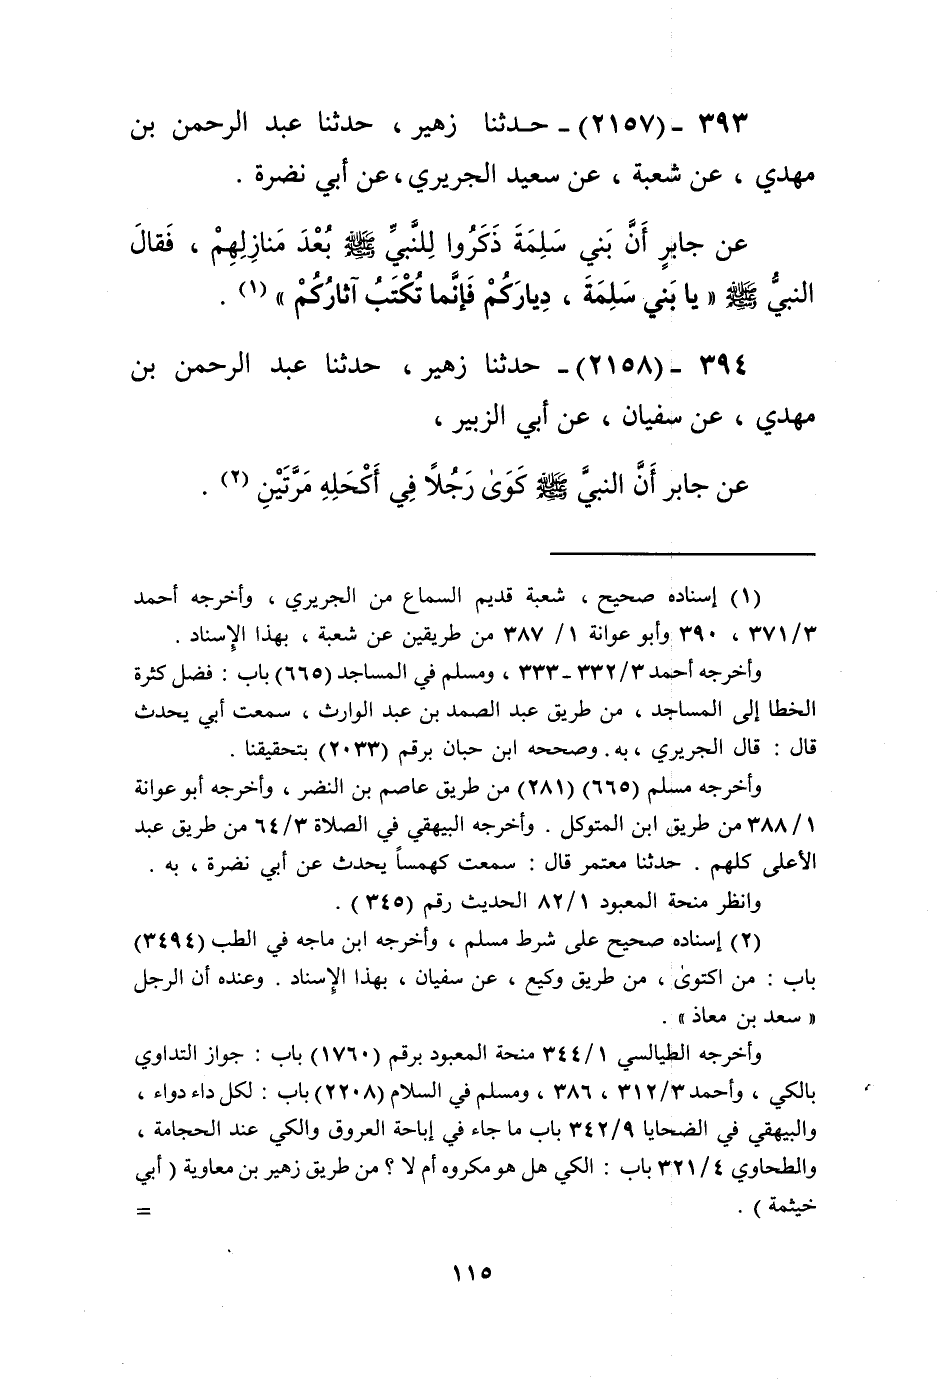 ٣٩٣ ـ (٢١٥٧) ـ حـدثنا زهير ، حدثنا عبد الرحمن بن
مهدي ، عن شعبة ، عن سعيد الجريري ، عن أبي نضرة .
عن جابرٍ أَنَّ بَني سَلِمَةَ ذَكَرُوا لِلنَّبيِّ ﷺ بُعْدَ مَنازِلِهِمْ ، فَقالَ
النبيُّ ﷺ « يا بَني سَلِمَةَ ، دِيارَكُمْ فَإِنَّما تُكْتَبُ آثارُكُمْ » (١) .
٣٩٤ ـ (٢١٥٨) ـ حدثنا زهير ، حدثنا عبد الرحمن بن
مهدي ، عن سفيان ، عن أبي الزبير ،
عن جابر أَنَّ النبيَّ ﷺ كَوَىٰ رَجُلاً فِي أَكْحَلِهِ مَرَّتَيْنِ (٢) .
(١) إسناده صحيح ، شعبة قديم السماع من الجريري ، وأخرجه أحمد
٣٧١/٣ ، ٣٩٠ وأبو عوانة ١/ ٣٨٧ من طريقين عن شعبة ، بهذا الإِسناد .
وأخرجه أحمد ٣٣٢/٣ ـ ٣٣٣ ، ومسلم في المساجد (٦٦٥) باب : فضل كثرة
الخطا إلى المساجد ، من طريق عبد الصمد بن عبد الوارث ، سمعت أبي يحدث
قال : قال الجريري ، به . وصححه ابن حبان برقم (٢٠٣٣) بتحقيقنا .
وأخرجه مسلم (٦٦٥) (٢٨١) من طريق عاصم بن النضر ، وأخرجه أبو عوانة
١/ ٣٨٨ من طريق ابن المتوكل . وأخرجه البيهقي في الصلاة ٦٤/٣ من طريق عبد
الأعلى كلهم . حدثنا معتمر قال : سمعت كهمساً يحدث عن أبي نضرة ، به .
وانظر منحة المعبود ٨٢/١ الحديث رقم (٣٤٥) .
(٢) إسناده صحيح على شرط مسلم ، وأخرجه ابن ماجه في الطب (٣٤٩٤)
باب : من اكتوىٰ ، من طريق وكيع ، عن سفيان ، بهذا الإِسناد . وعنده أن الرجل
« سعد بن معاذ » .
وأخرجه الطيالسي ٣٤٤/١ منحة المعبود برقم (١٧٦٠) باب : جواز التداوي
بالكي ، وأحمد ٣١٢/٣ ، ٣٨٦ ، ومسلم في السلام (٢٢٠٨) باب : لكل داء دواء ،
والبيهقي في الضحايا ٣٤٢/٩ باب ما جاء في إباحة العروق والكي عند الحجامة ،
والطحاوي ٣٢١/٤ باب : الكي هل هو مكروه أم لا ؟ من طريق زهير بن معاوية ( أبي
خيثمة ) . =
١١٥